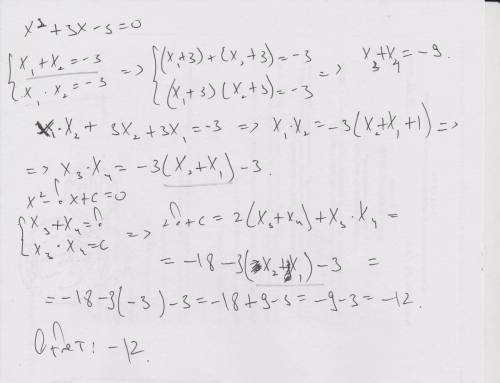 x² + 3x - 3 = 0
{ x₁ + x₂ = -3 => { (x₁+3) + (x₂+3) = -3 => x₃ + x₄ = -9.
{ x₁ · x₂ = -3 { (x₁+3)(x₂+3) = -3
x₁ · x₂ + 3x₂ + 3x₁ = -3 => x₁ · x₂ = -3(x₂ + x₁ + 1) =>
=> x₃ · x₄ = -3(x₂ + x₁) - 3.
x² - b x + c = 0
{ x₃ + x₄ = b => 2b + c = 2(x₃ + x₄) + x₃ · x₄ =
{ x₃ · x₄ = c
= -18 - 3(x₂ + x₁) - 3 =
= -18 - 3(-3) - 3 = -18 + 9 - 3 = -9 - 3 = -12.
Ответ: -12.